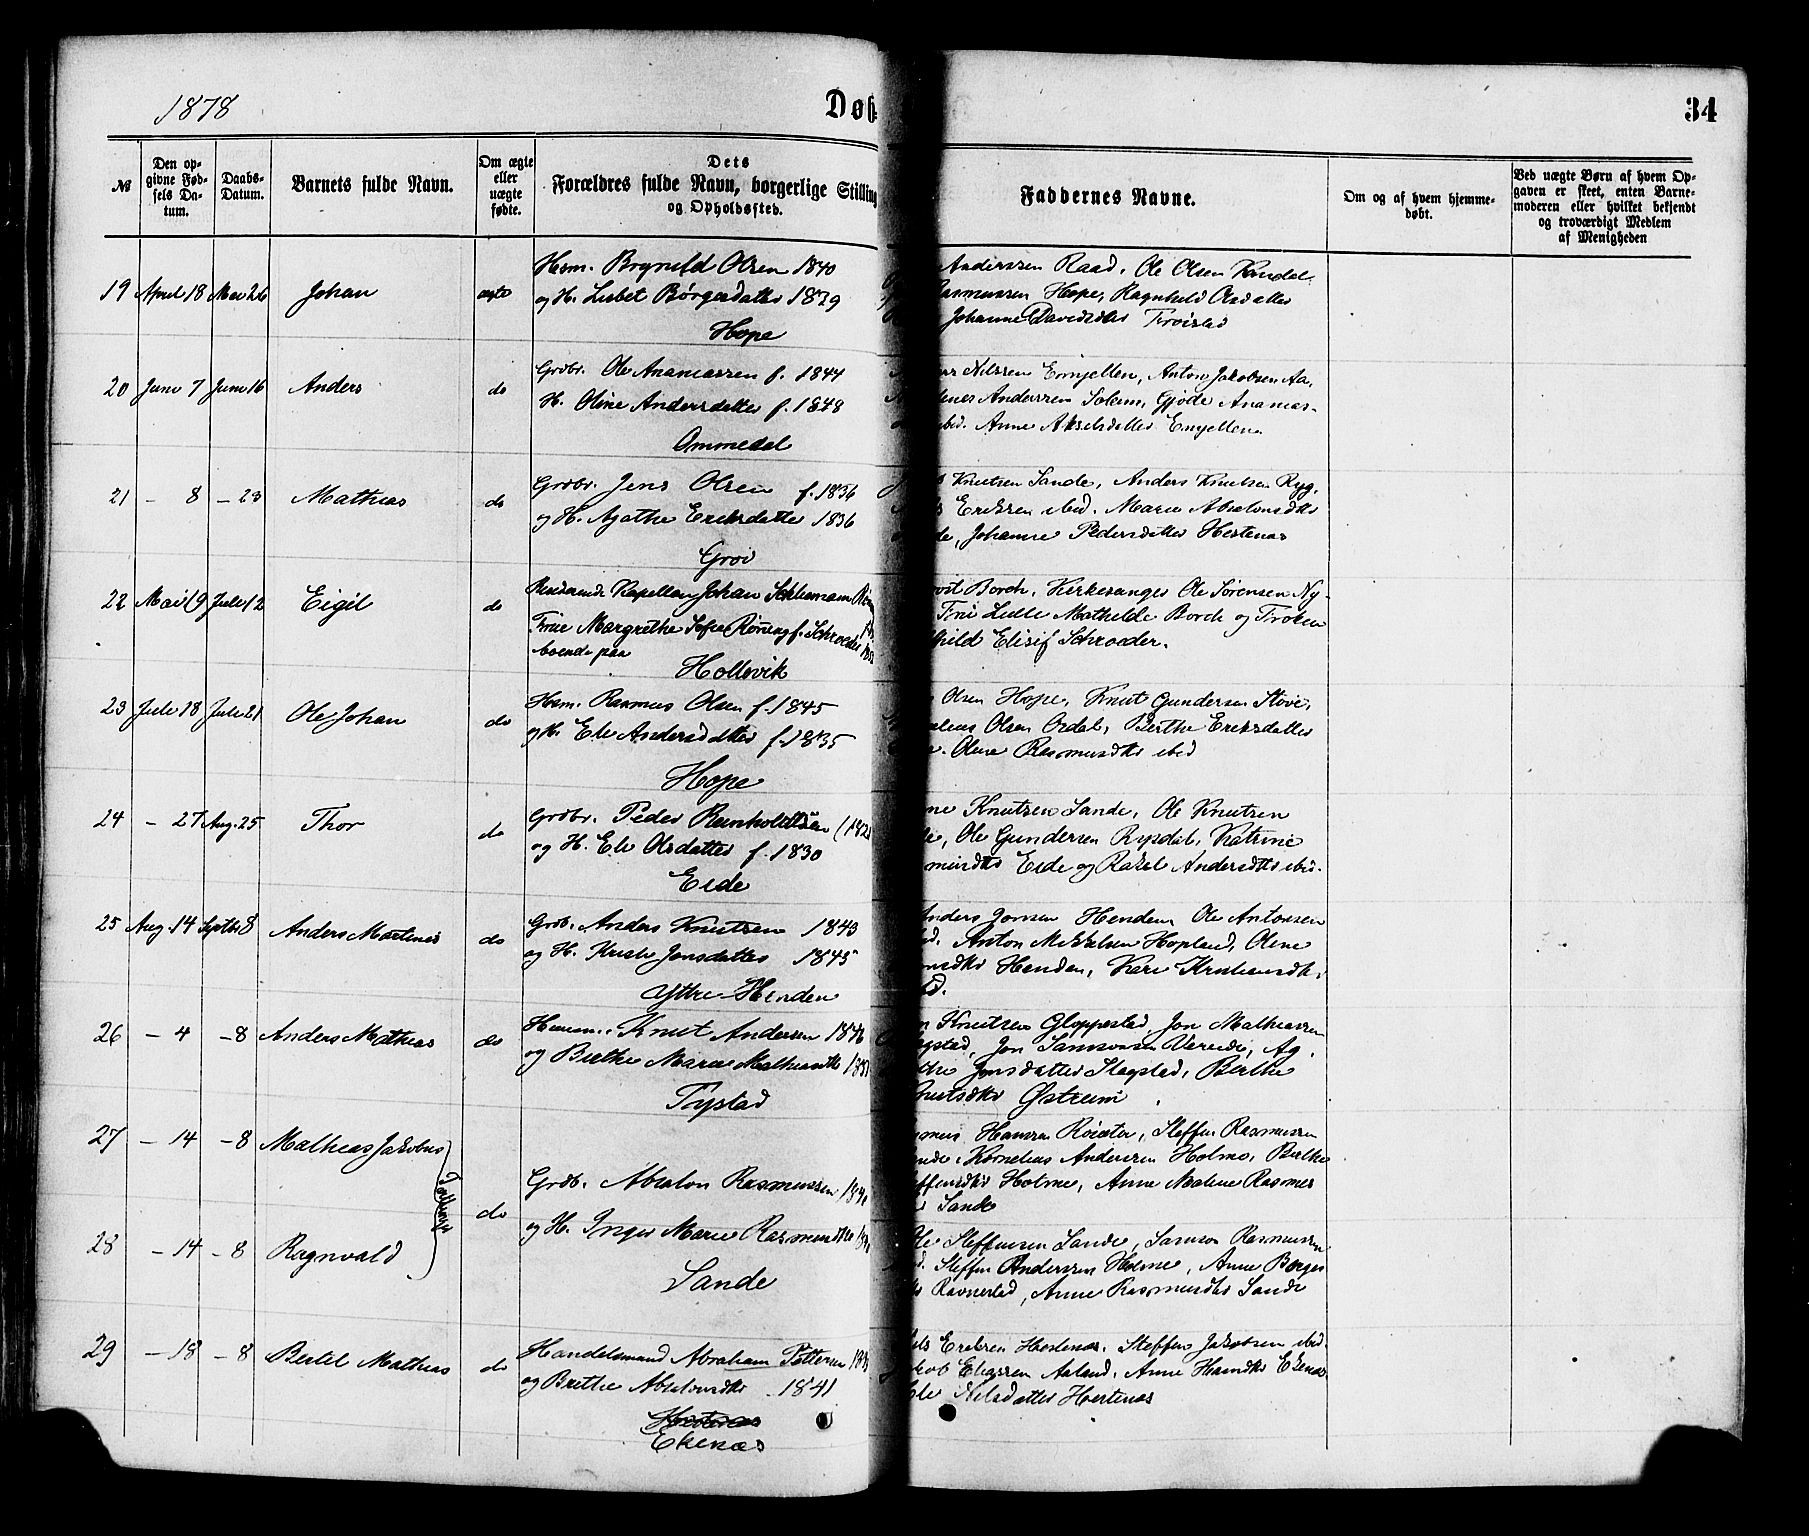 1878
Døb
34
№
Den op-
givne Fød-
sels Da-
tum.
Daabs-
Datum.
Barnets fulde Navn.
Om ægte
eller
uægte
fødte.
Dets
Forældres fulde Navn, borgerlige Stilling
og Opholdssted.
Faddernes Navne.
Om og af hvem hjemme-
døbt.
Ved uægte Børn af hvem Op-
gaven er skeet, enten Barne-
moderen eller hvilket bekjendt
og troværdigt Medlem
af Menigheden
19 April 18 Mai 26 Johan ægte
Hsm. Brynild Olsen 1840
og H. Lisbet Børgesdatter 1839
Hope
Anderssen Raad, Ole Olsen
Rasmussen Hope, Ragnhild Olsdatter
Johanne Davidsdtr Troistad
20 Juni 7 Juni 16 Anders do
Grdbr. Ole Ananiassen f. 1844
H. Oline Andersdatter f. 1848
Ommedal
Nilssen Emyellen, Anton Jakobsen Aa,
Anderssen Solem, Gjøde Ananias-
ibid. Anne Akselsdatter Emyellen
21 – 8 – 23 Mathias do
Grdbr. Jens Olsen f. 1836
og H. Agathe Eriksdatter 1836
Groi
Knutsen Sande, Anders Knutsen Ryg,
Eriksen ibid. Marie Absalonsdtr
Johanne Pedersdatter Hestenæs
22 Mai 19 Juli 12 Eigil do
Residerende Kapellan Johan
Frue Margrethe Sofie Rønneng f. Schroeder
boende paa
Hollevik
Borch, Kirkesanger Ole Sørensen Ny-
Frøi Lulle Mathilde Borch og Frøken
Elisif Schrøder.
23 Juli 18 Juli 21 Ole Johan do
Hsm. Rasmus Olsen f. 1845
og H. Eli Andersdatter f. 1835
Hope
Olsen Hope, Knut Gundersen Støve,
Olsen Ordal, Berthe Eriksdatter
Oline Rasmusdtr ibid
24 – 27 Aug. 25 Thor do
Grdbr. Peder Reinholdtsen
og H. Eli Olsdatter f. 1830
Eide
Knutsen Sande, Ole Knutsen
Ole Gundersen Rysdal, Katrine
Eide og Rakel Andersdtr ibid.
25 Aug. 14 Septbr 8 Anders Martinus do
Grdb. Anders Knutsen 1843
og H. Kristi Jensdatter 1845
Ytre Henden
Anders Jonsen Henden Ole Antonsen
Anton Mikkelsen Hopland, Oline
Henden, Kari
26 – 4 – 8 Anders Mathias do
Knut Andersen
og Berthe Marie Mathiasdtr
Tystad
Knutsen Gloppestad, Jon Mathiassen
Jon Samsonsen Vereide, Ag.
Jonsdatter Stegstad, Berthe
Østreim
27 – 14 – 8 Mathias Jakobus
Tvillinger
Grdb. Absalon Rasmussen
do
og H. Inger Marie Rasmusdtr
Hansen Røiseter, Steffen Rasmussen
Kornelius Andersen Holme, Berthe
Holme, Anne Malene Rasmus
Sande
28 – 14 – 8 Ragnvald
Sande
Ole Steffensen Sande, Samson Rasmussen
Steffen Anderssen Holme, Anne Børges
Ravnestad, Anne Rasmusdtr Sande
29 – 18 – 8 Bertel Mathias do
Handelsmand Abraham Pettersen
og Brithe Absalonsdtr 1841
Hestenæs
Ekenæs
Eriksen Hestenæs, Steffen Jakobsen ibid.
Eliassen Aaland, Anne Hansdtr Ekenæs
Nilsdatter Hestenæs